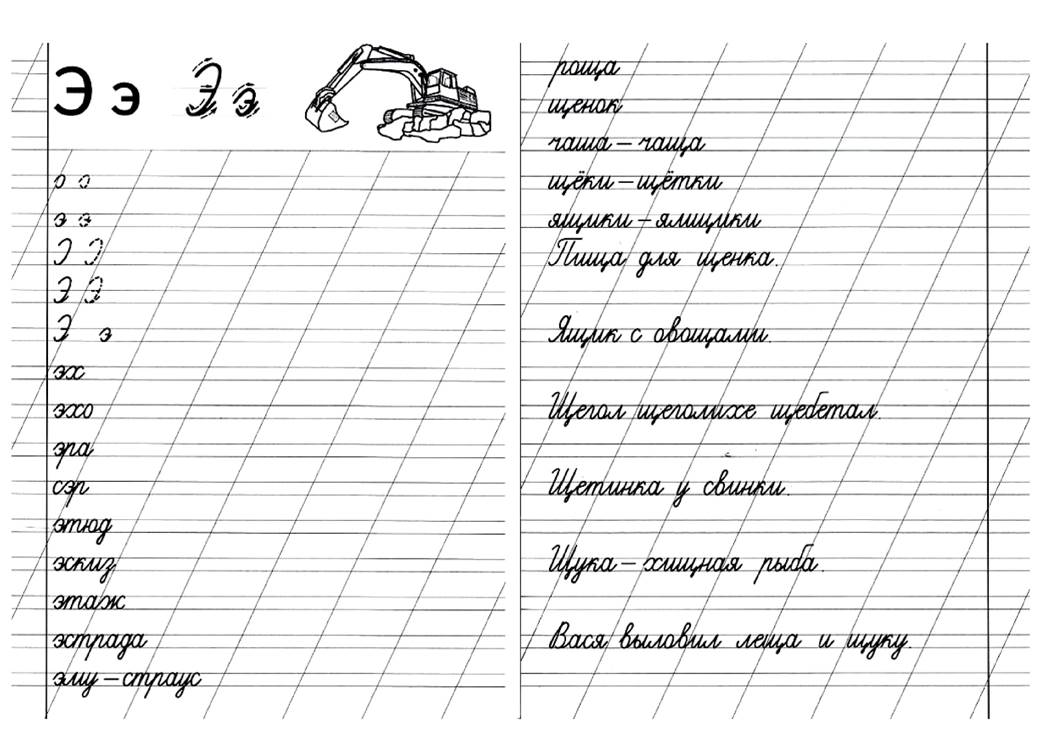 Э э Э э
о о
э э
Э Э
Э Э
Э э
эх
эхо
эра
сэр
этюд
эскиз
этаж
эстрада
эму – страус
роща
щенок
чаша – чаща
щёки – щётки
ящики – ямщики
Пища для щенка.
Ящик с овощами.
Щегол щеголихе щебетал.
Щетинка у свинки.
Щука – хищная рыба.
Вася выловил леща и щуку.